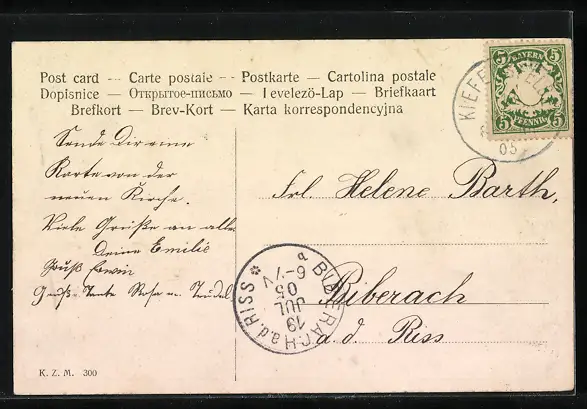 Post card — Carte postale — Postkarte — Cartolina postale
Dopisnice — Открытое-письмо — Levelezö-Lap — Briefkaart
Brefkort — Brev-Kort — Karta korrespondencyjna
5 BAYERN 5
5 PFENNIG 5
KIEFE
05
Sende Dir eine
Karte von der
neuen Kirche.
Viele Grüße an alle
Deine Emilie
Gruß Erwin
Gruß Tante Rosa u.
Frl. Helene Barth,
Biberach
a. d. Riss
BIBERACH a.d. RISS
19 JUL 05
6-7 N
a
K. Z. M. 300